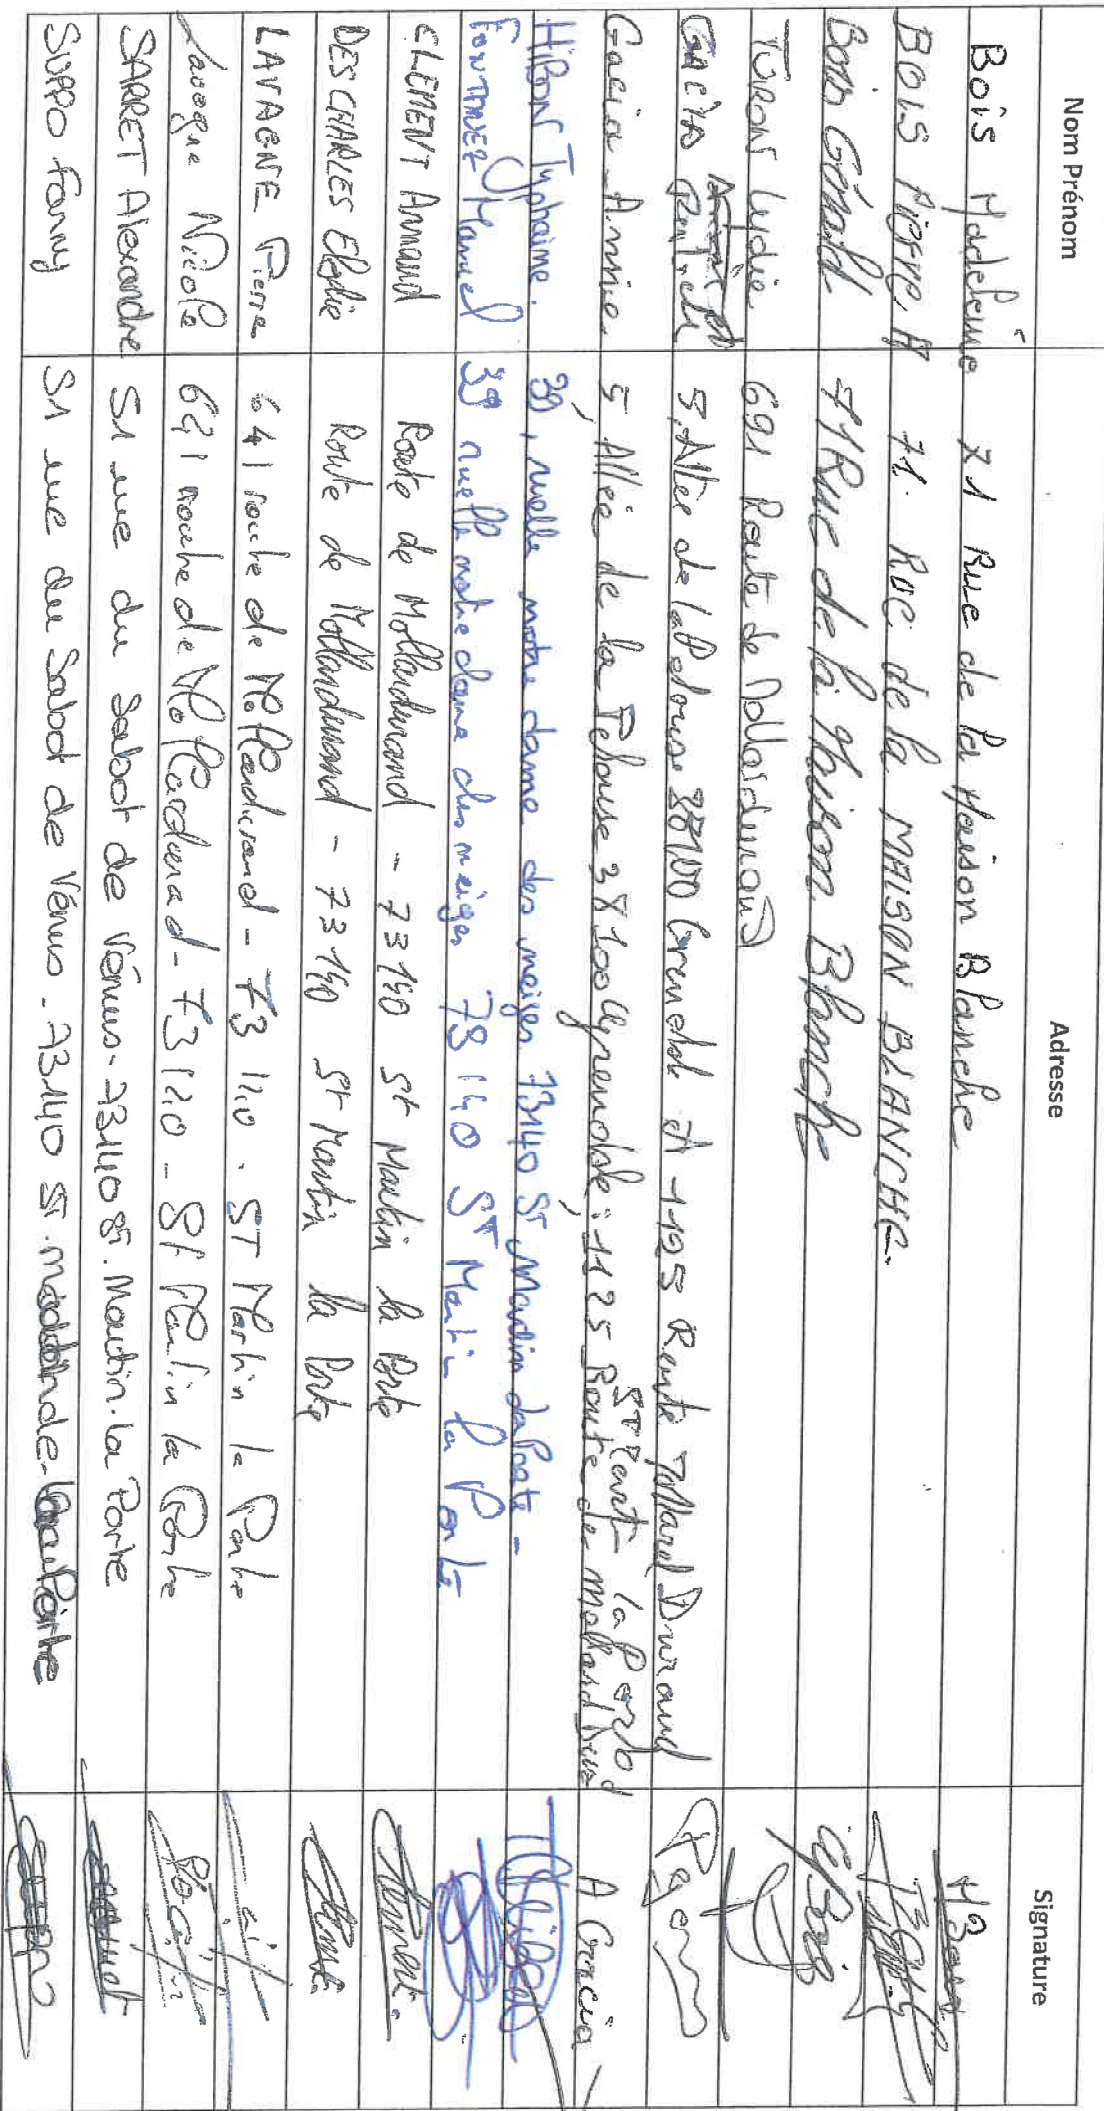 Nom Prénom Adresse Signature
Bois Madeleine 71 Rue de la Maison Blanche
BOIS Pierre. A 71. Rue de la MAISON BLANCHE.
Bois Gérald 71 Rue de la Maison Blanche
TURON Ludie 691 Route de Mollardurand
Garcia 5, Allée de la Pelouse 38100 Grenoble et -1125 Route Mollard Durand
St Mart la Porte
Garcia Annie 5, Allée de la Pelouse 38100 Grenoble: 1125 Route de Mollard Dur A Garcia
HIBON Typhaine. 39, ruelle notre dame des neiges 73140 St Martin la Porte -
FONTANEZ Manuel 39 ruelle notre dame des neiges 73140 ST Martin la Porte
CLEMENT Arnaud Route de Mollardurand - 73140 St Martin la Porte
DESCHARLES Elodie Route de Mollardurand - 73140 St Martin la Porte
LAVAGNE Pierre 641 route de Mollardurand - 73140. ST Martin la Porte
Lavagne Nicole 641 route de Mollardurand - 73140 - St Martin la Porte
SARRET Alexandre 51 rue du Sabot de Vénus - 73140 St. Martin. la Porte
SUPPO Fanny 51 rue du Sabot de Vénus - 73140 St.